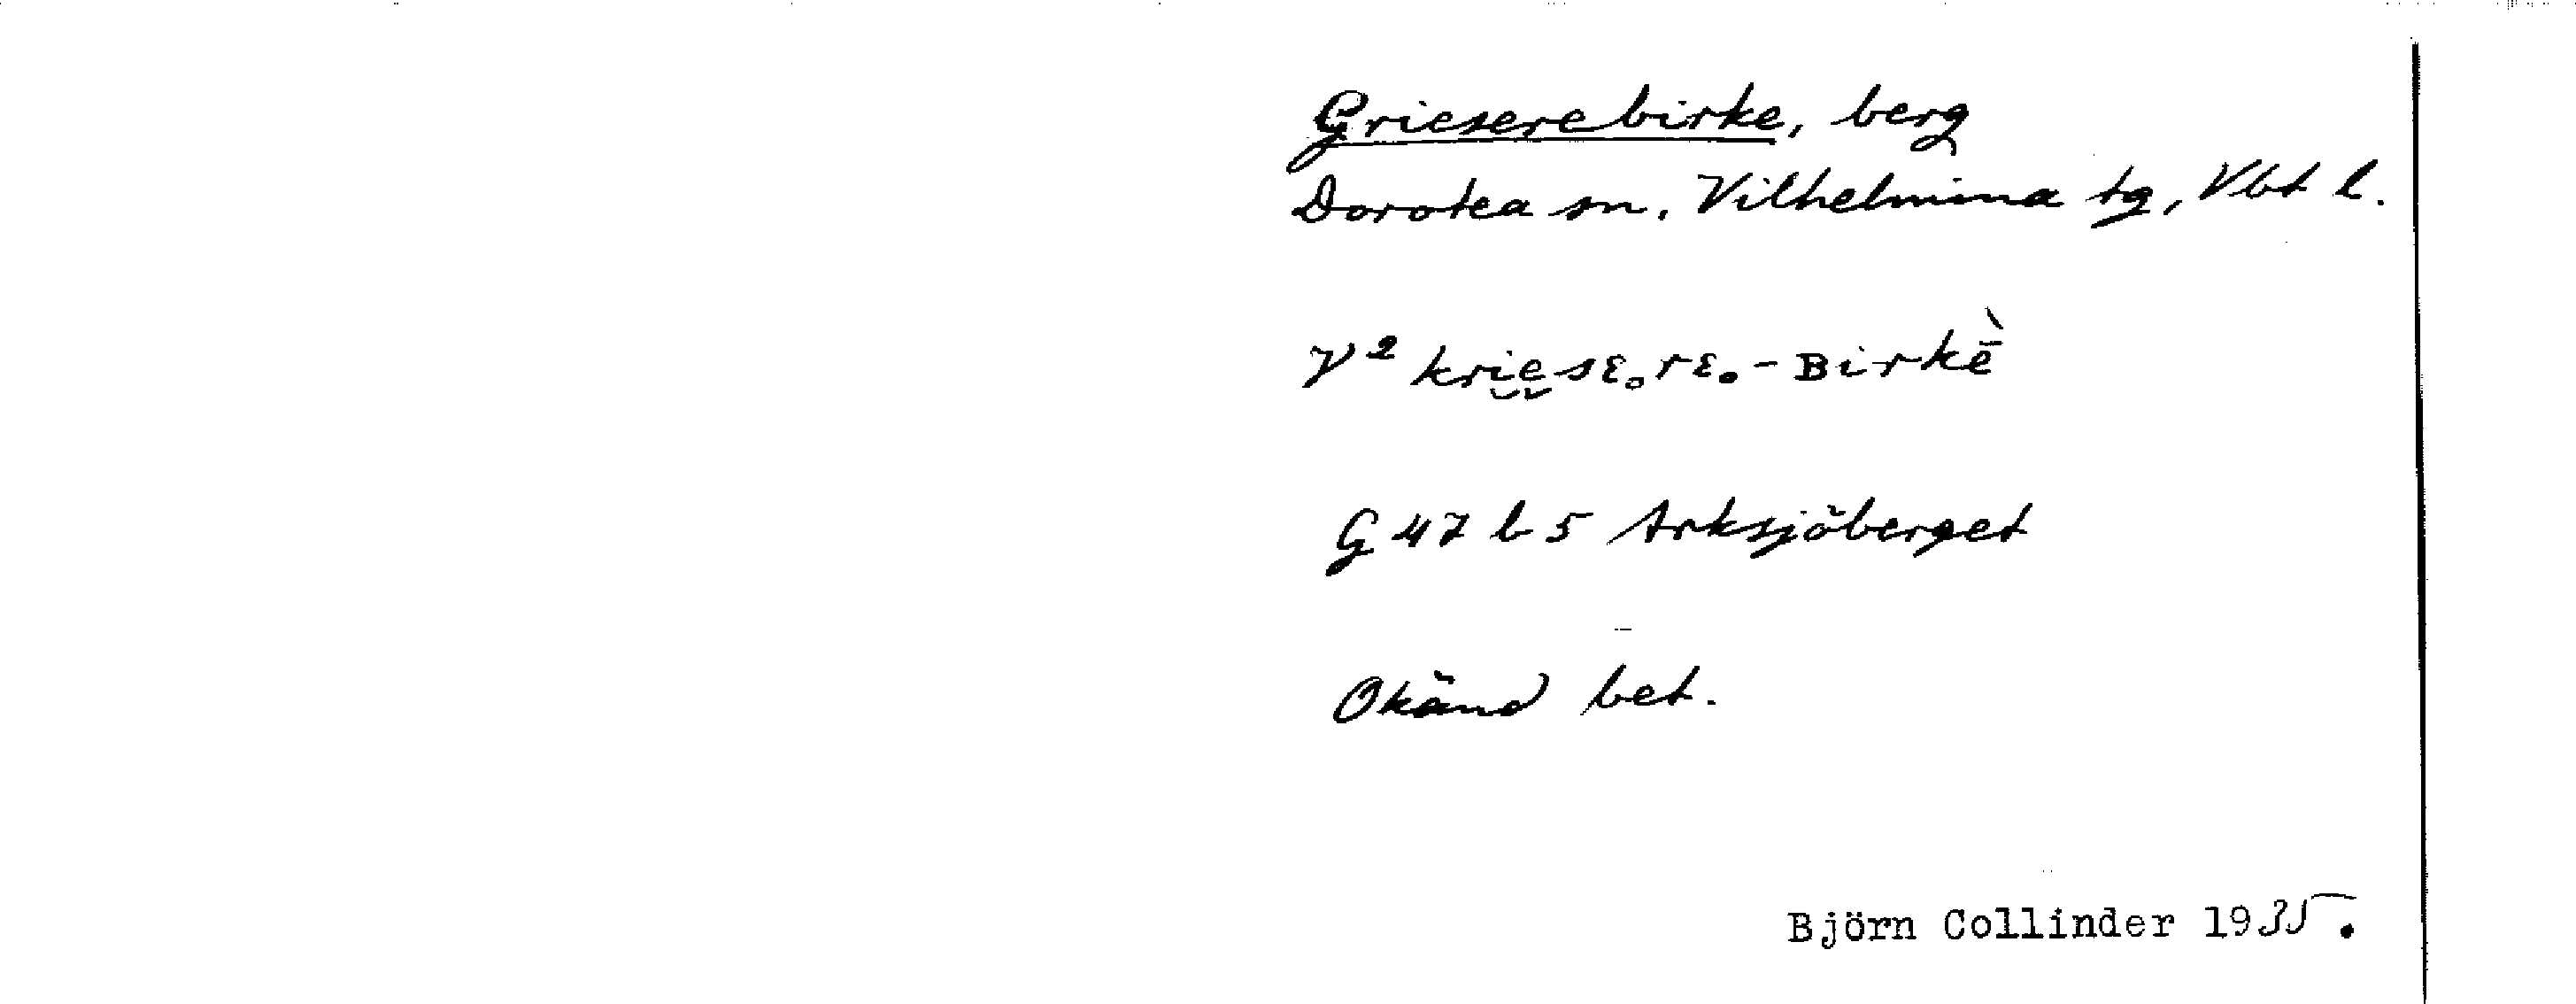 Grieserebirke, berg
Dorotea sn, Vilhelmina tg, Vbt l.
V² kri̮e̮sɛ˳rɛ˳-Birkḕ
G 47 b 5 Arksjöberget
Okänd bet.
Björn Collinder 1935.